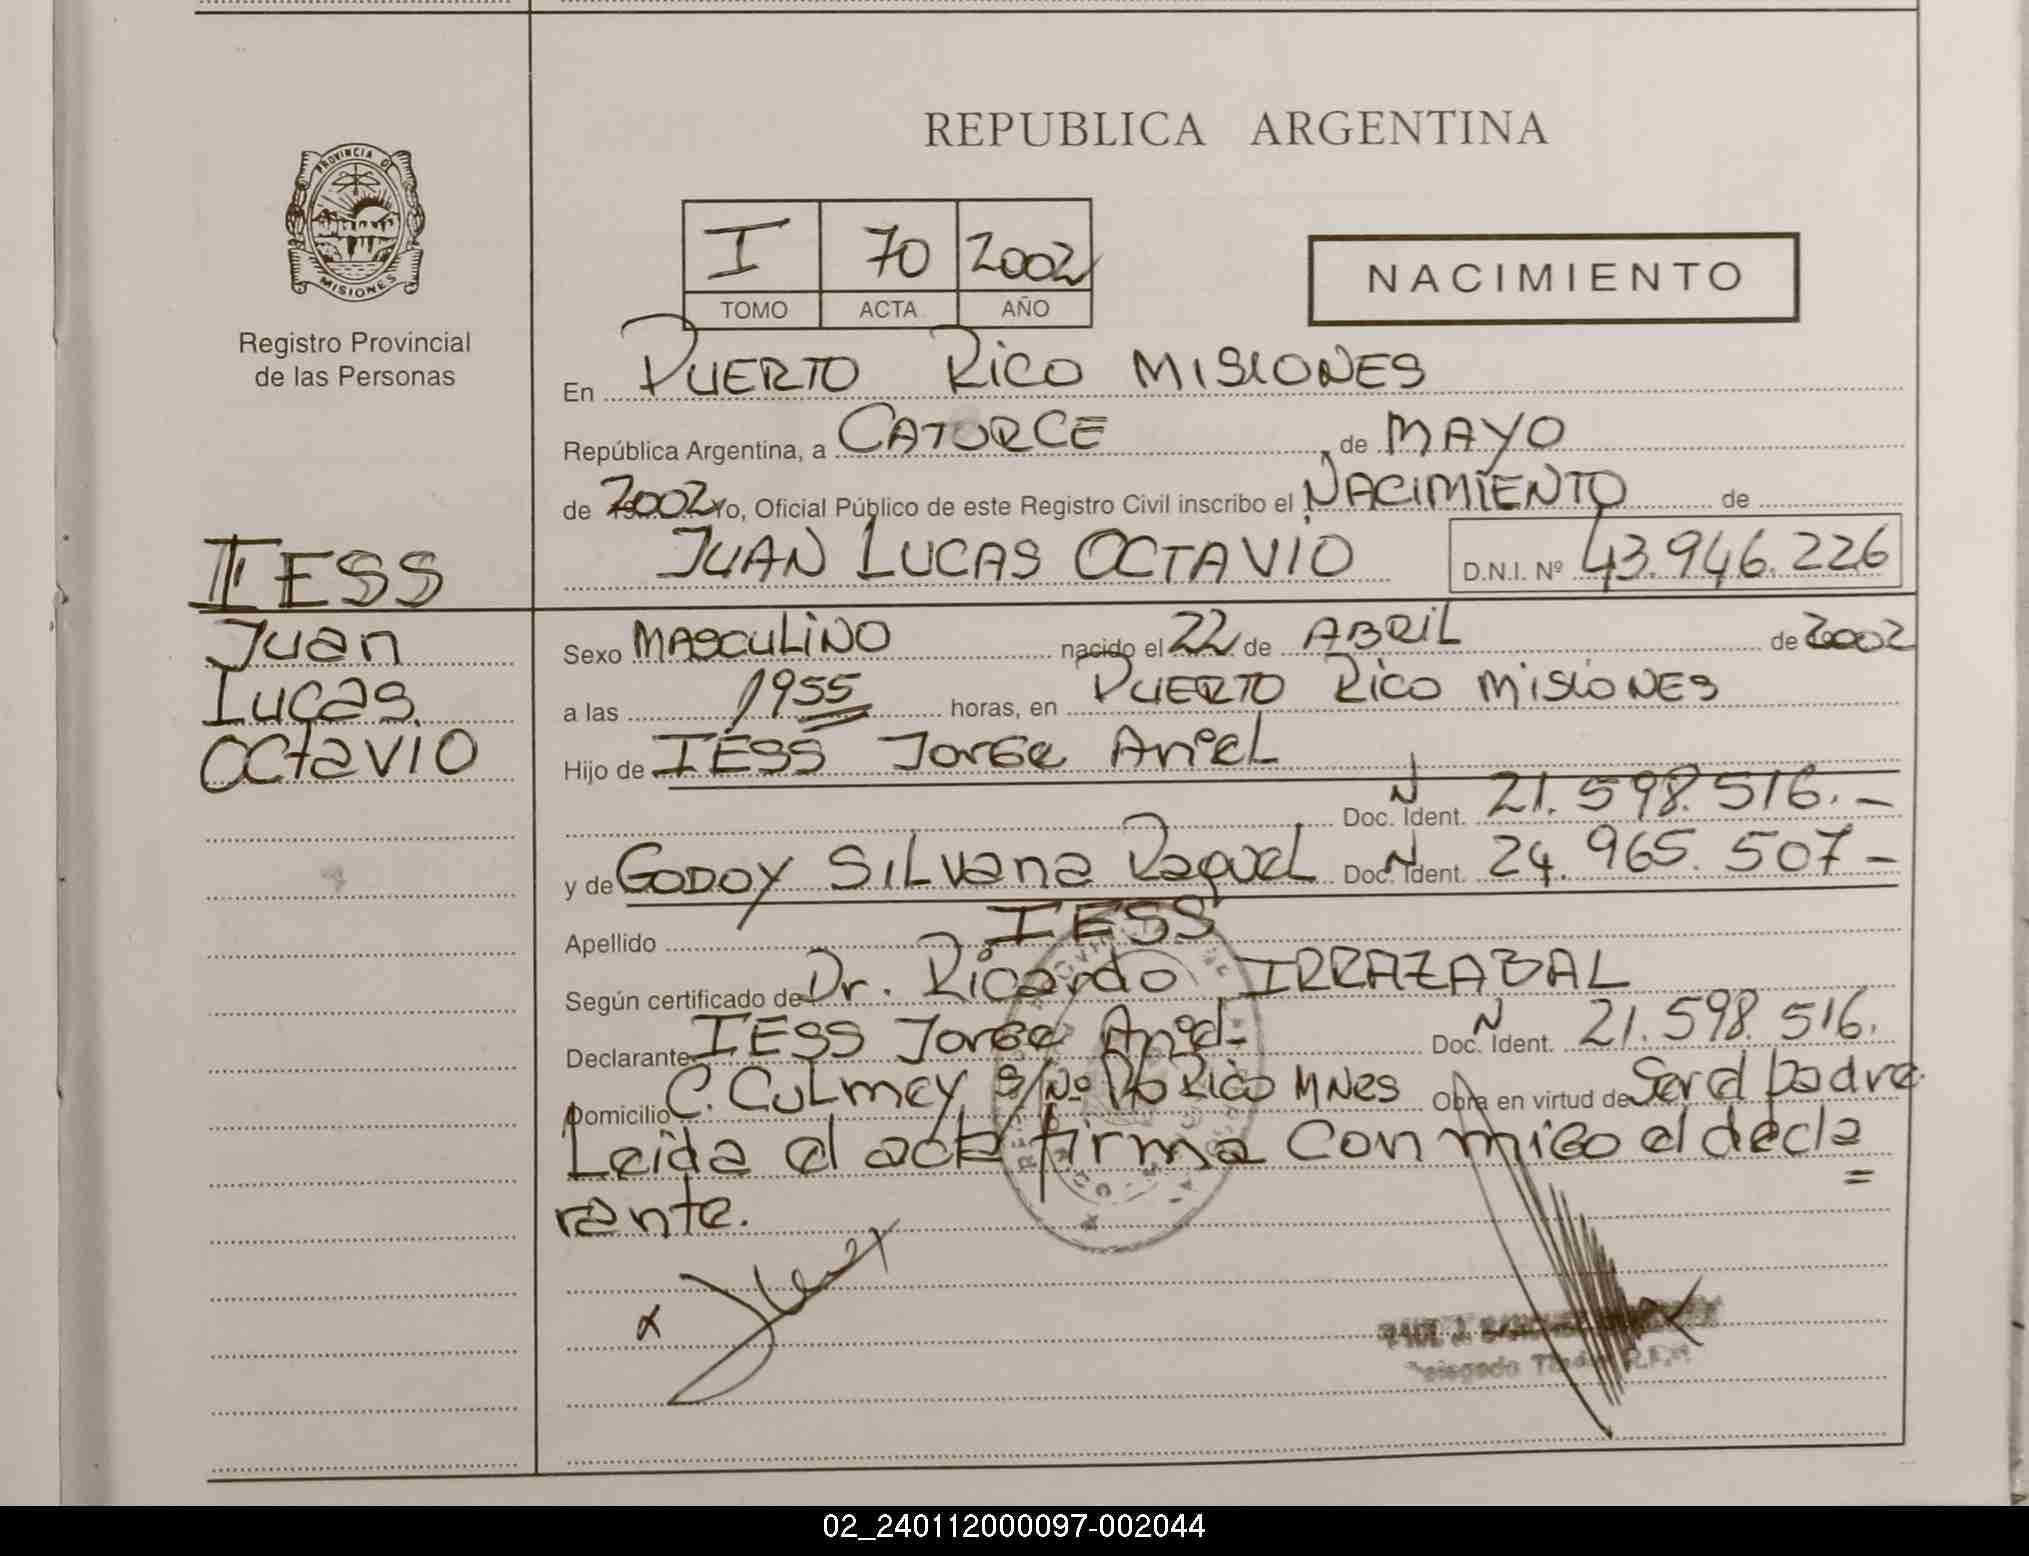 REPUBLICA ARGENTINA
PROVINCIA DE
MISIONES
Registro Provincial
de las Personas
I 70 2002
TOMO ACTA AÑO
NACIMIENTO
En PUERTO RICO MISIONES
República Argentina, a CATORCE de MAYO
de 2002 Yo, Oficial Público de este Registro Civil inscribo el NACIMIENTO de
JUAN LUCAS OCTAVIO D.N.I. Nº 43.946.226
IESS
Juan
Lucas
Octavio
Sexo MASCULINO nacido el 22 de ABRIL de 2002
a las 1955 horas, en PUERTO RICO MISIONES
Hijo de IESS Jorge Angel
Doc. Ident. N 21.598.516.-
y de GODOY Silvana Raquel Doc. Ident. N 24.965.507-
Apellido IESS
Según certificado de Dr. Ricardo IRRAZABAL
Declarante IESS Jorge Angel- Doc. Ident. N 21.598.516.
Domicilio C. Culmey S/Nº Pto Rico Mnes Obra en virtud de Ser el padre.
Leida el acta firma conmigo el decla=
rante.
02_240112000097-002044